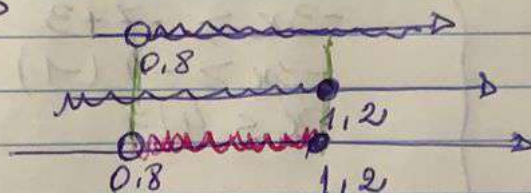 0,8
1,2
0,8 1,2